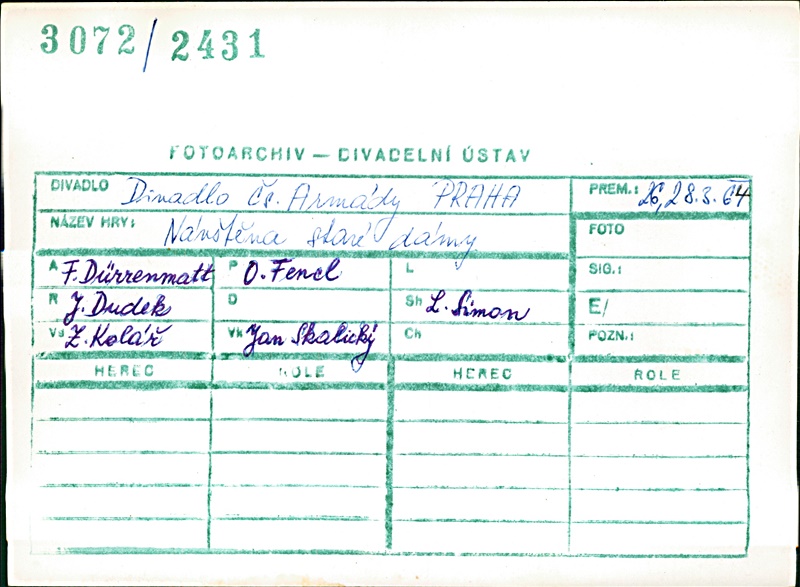 3072/2431
FOTOARCHIV — DIVADELNÍ ÚSTAV
DIVADLO Divadlo čs. Armády PRAHA PREM.: 26, 28.3.64
NÁZEV HRY: Návštěva staré dámy FOTO
A F. Dürrenmatt P O. Fencl L SIG.:
R J. Dudek D Sh L. Simon E/
Vs Z. Kolář Vk Jan Skalický Ch POZN.:
HEREC ROLE HEREC ROLE